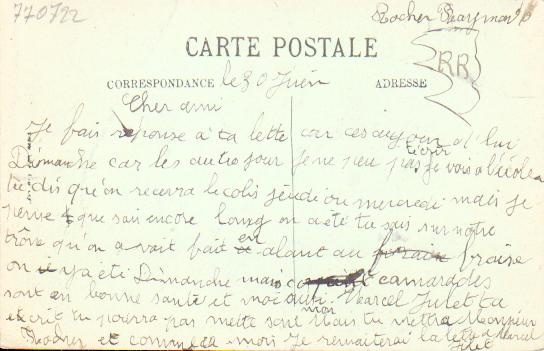 770722
Rocher Raymond
RR
CARTE POSTALE
CORRESPONDANCE le 30 Juin
ADRESSE
Cher ami
Je fais reponse à ta lette car ces aujour d'lui
Dimanche car les autre jour je ne peu pas écrir je vais a l'école
tu dis qu'on recevra le colis jeudi ou mercredi mais je
pense que sait encore long on a été tu sais sur notre
trône qu'on a vait fait en alant au fraise
on y a été Dimanche mais camarades
sont en bonne santé et moi aussi Marcel Julet ta
écrit tu pourra pas mette sont nom tu mettra Monsieur
Rocher et comme ça moi je remettérai la lette a Marcel
Julet